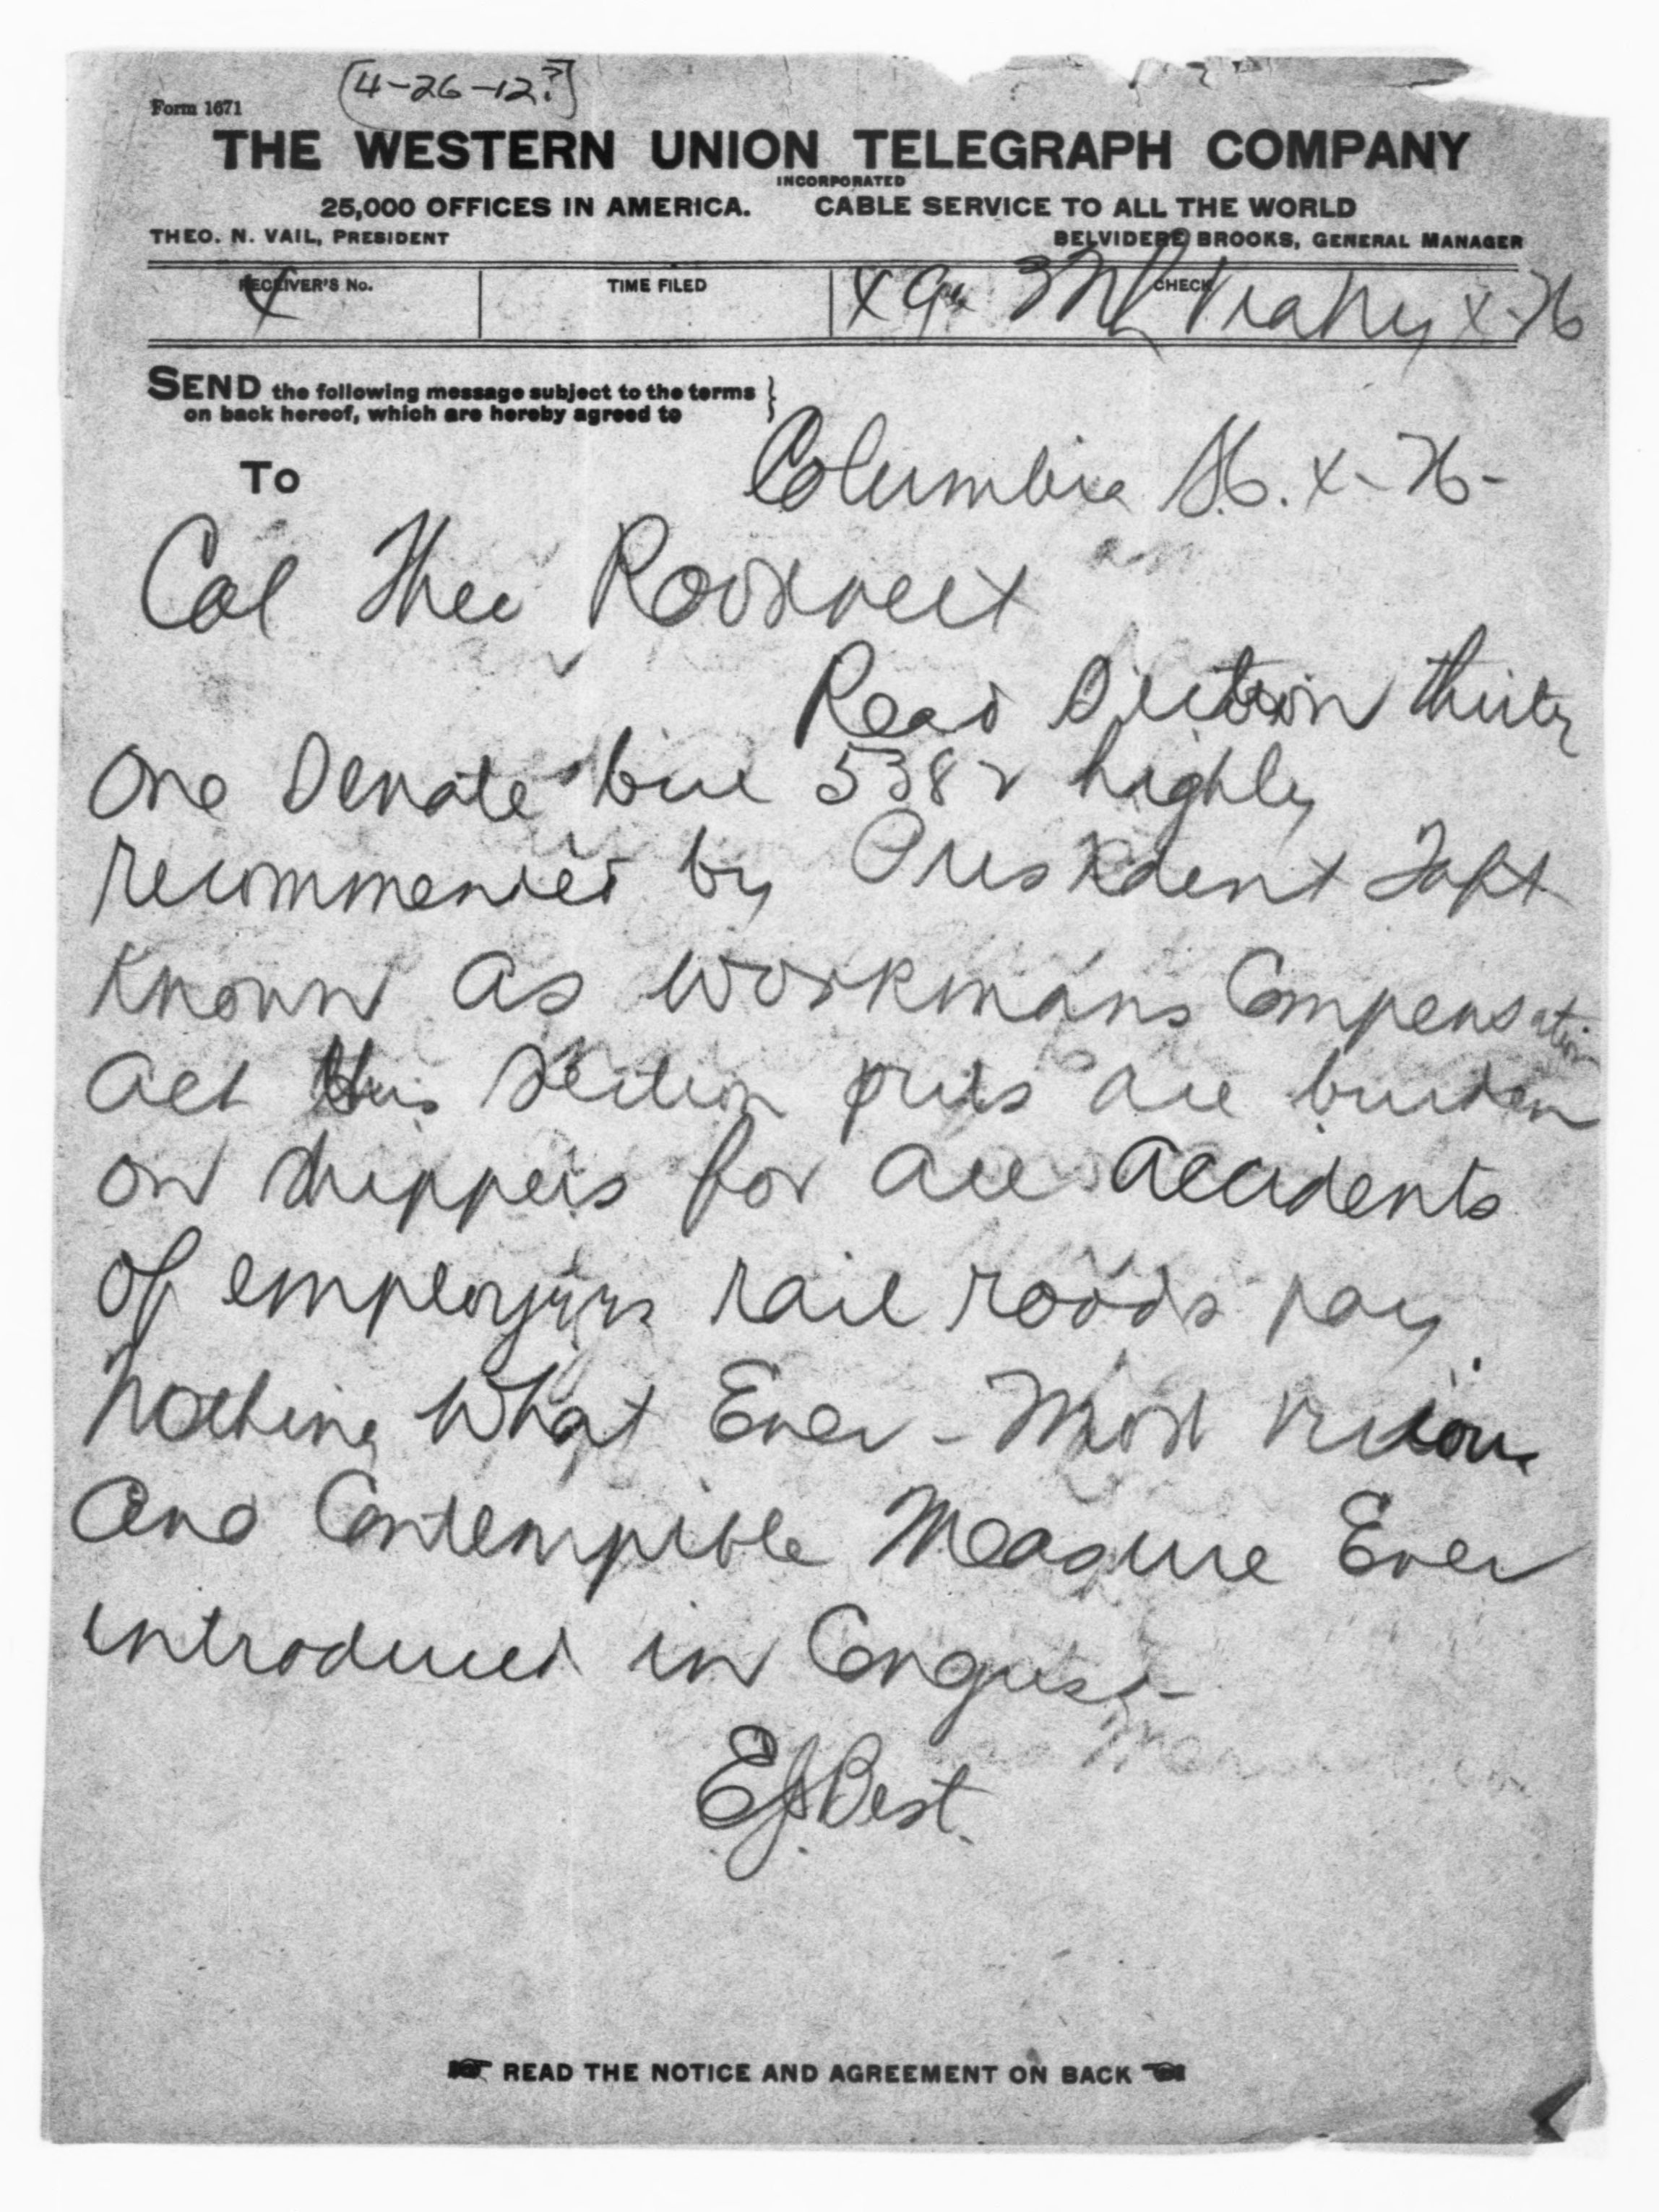 [4-26-12?]
Form 1671
THE WESTERN UNION TELEGRAPH COMPANY
INCORPORATED
25,000 OFFICES IN AMERICA. CABLE SERVICE TO ALL THE WORLD
THEO. N. VAIL, PRESIDENT BELVIDERE BROOKS, GENERAL MANAGER
RECEIVER'S No. TIME FILED CHECK
X
SEND the following message subject to the terms
on back hereof, which are hereby agreed to
To Columbia SC. X-26-
Col Theo Roosevelt
Read Section thirty
One Senate bill 5382 highly
recommended by President Taft
Known as Workmans Compensation
Act this Section puts all burden
on shippers for all accidents
of employees rail roads pay
nothing What Ever - Most vicious
and Contemptible Measure Ever
introduced in Congress-
EJ Best.
READ THE NOTICE AND AGREEMENT ON BACK